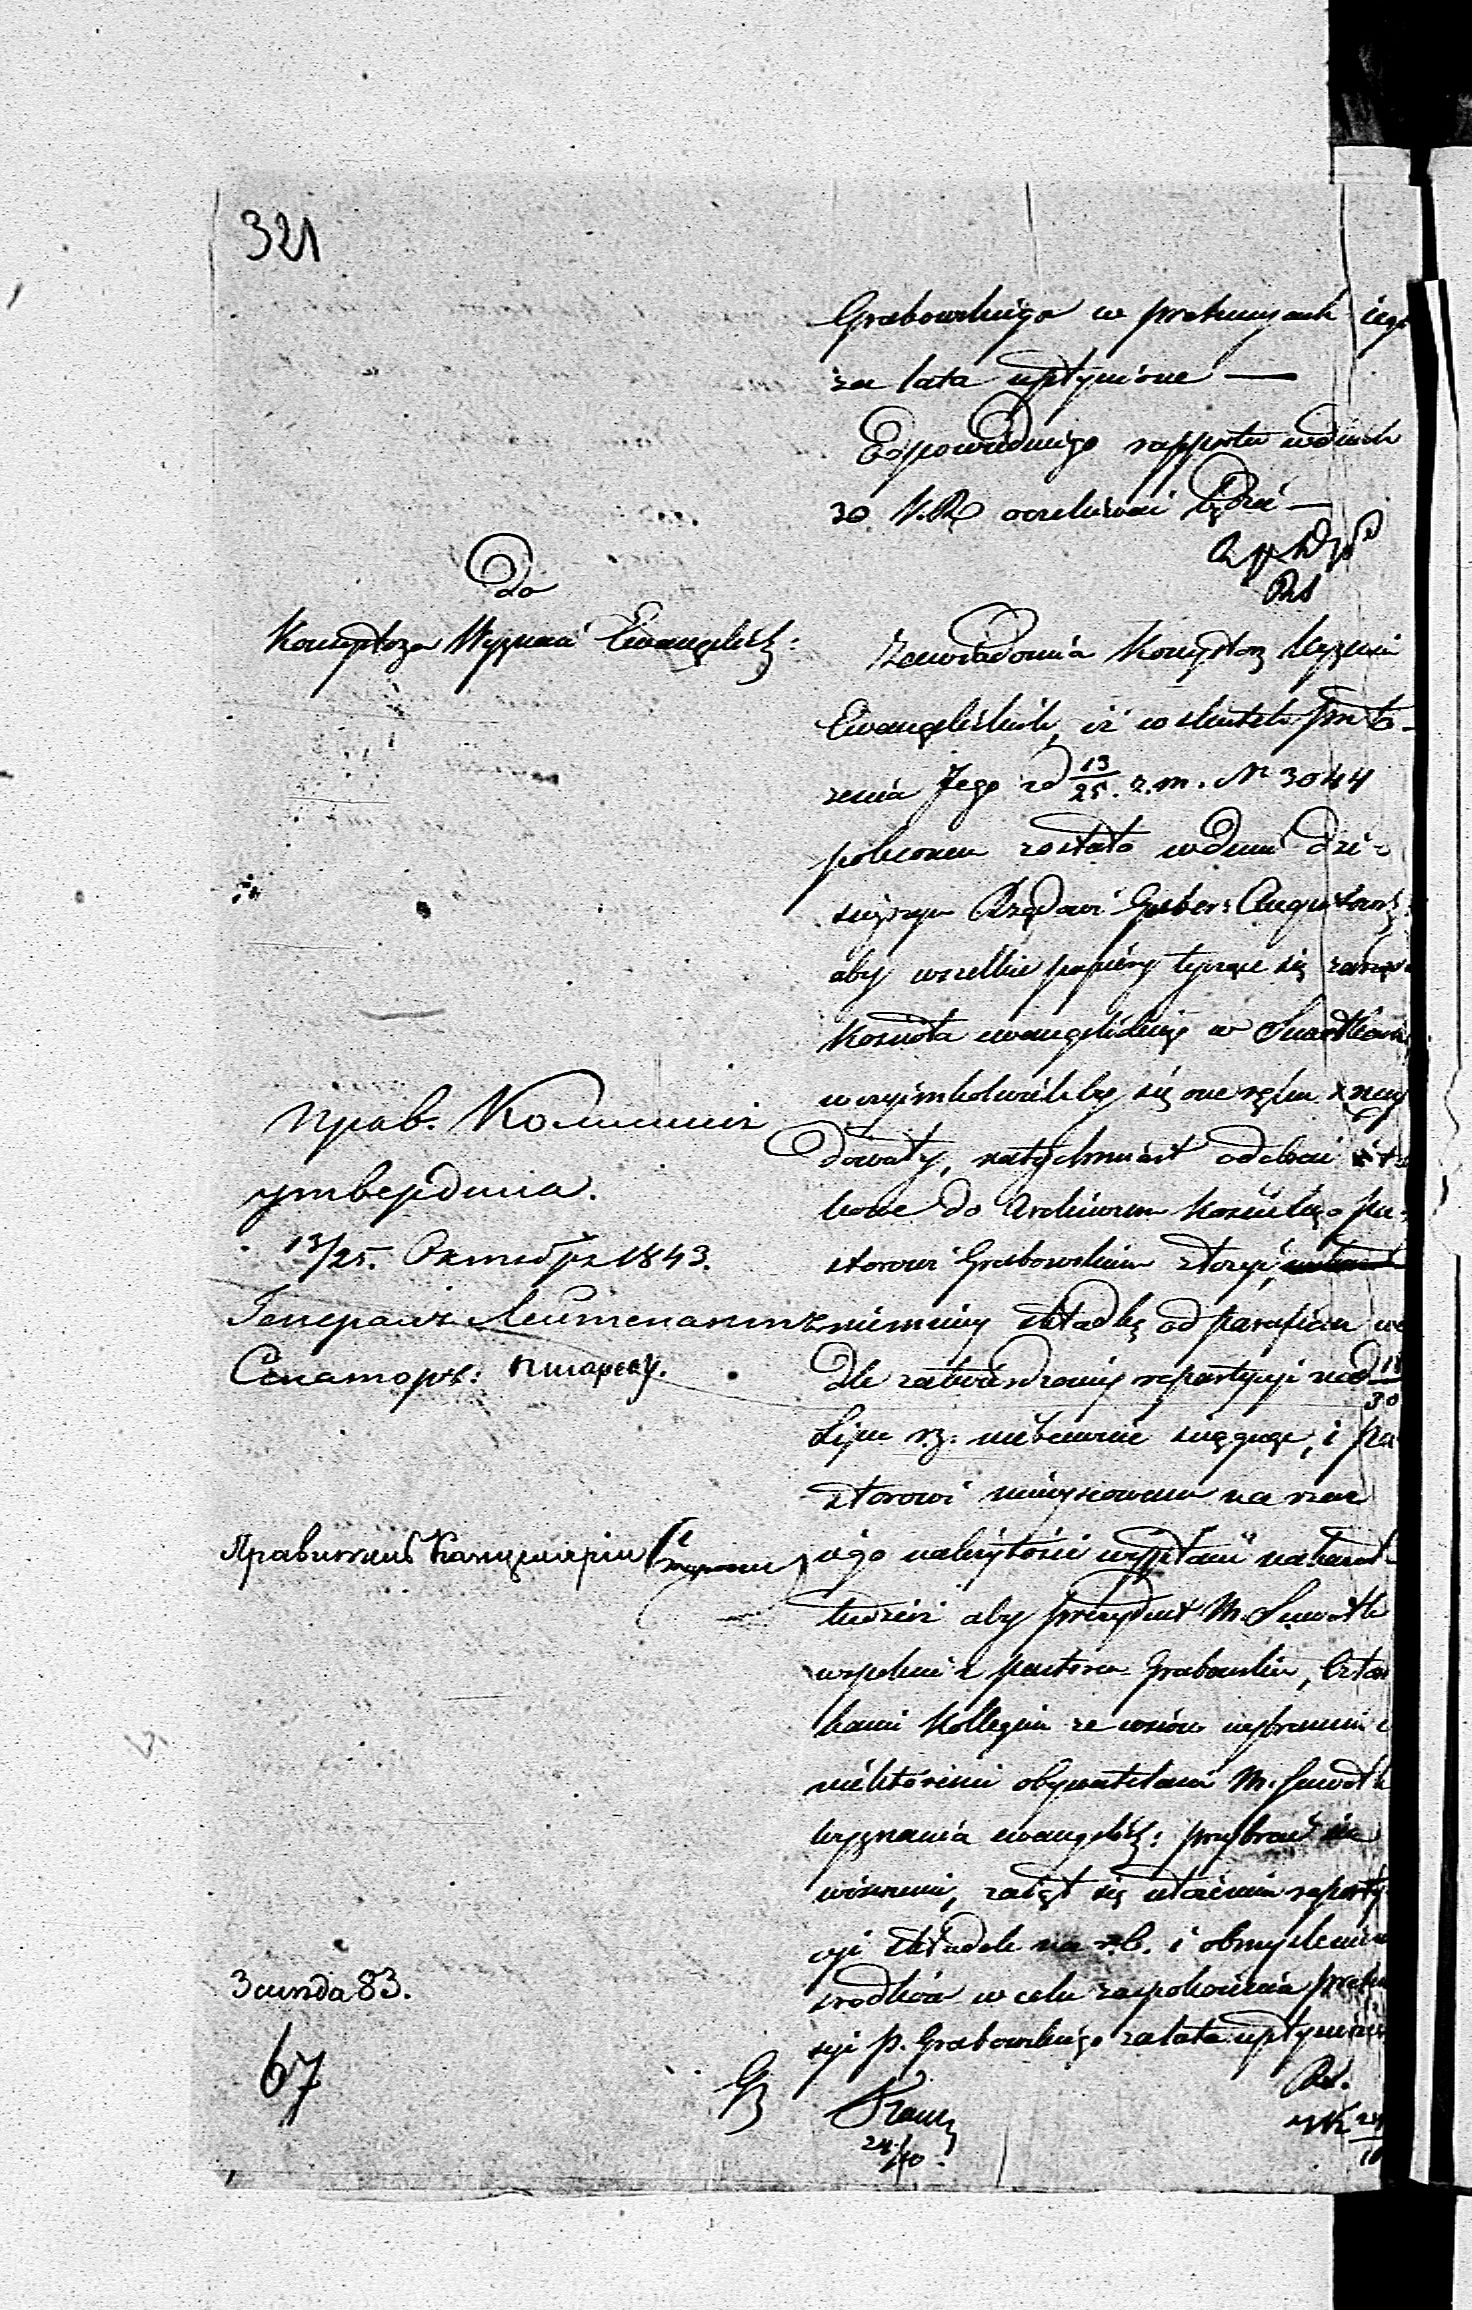 321
Grabowskiego w pretensyach iego
za lata upłynione —
Odpowiedniego rapportu w dniach
30 K.R. oczekiwać będzie —
Do
Konsystorza Wyznań Ewangelick:
Zawiadomia Konsystorz Wyznań
Ewangelickich, iż w skutek przeło-
żenia Jego z d 13/25. z. m. Nr 3044
polecone zostało w dniu dzi-
siejszym Rządowi Guber: Augustowsk:
aby wszelkie papiery tyczące się zarządu
Kościoła ewangelickiego w Suwałkach,
w czyimkolwiekby się one ręku znay
dowały, natychmiast odebrać i ta
kowe do Archiwum Kościelnego Pa-
storowi Grabowskiemu złożyć,
niemniey składkę od parafian we
dle zatwierdzoney repartycyi na d 18/30
Lipca r.z. niebawnie ściągnąć, i Pa
storowi mieyscowemu na rzecz
iego należytości wypłacić nakazał
tudzież aby Prezydent M. Suwałk
wspólnie z Pastorem Grabowskim, Człon
kami Kollegium ze wsiów wybranemi i
niektóremi obywatelami M. Suwałk
wyznania ewangelick: przybrać się
winnemi, zaiął się ułożeniem reparty
cyi składek na r.b. i obmyśleniem
środków w celu zaspokoienia preten
syi p. Grabowskiego za lata upłynione
Прав. Коммисіи
утвердила.
13/25. Октября 1843.
Генералъ Лейтенантъ
Сенаторъ: Писаревъ.
Правитель Канцеляріи
Зашда 83.
67
24/10.